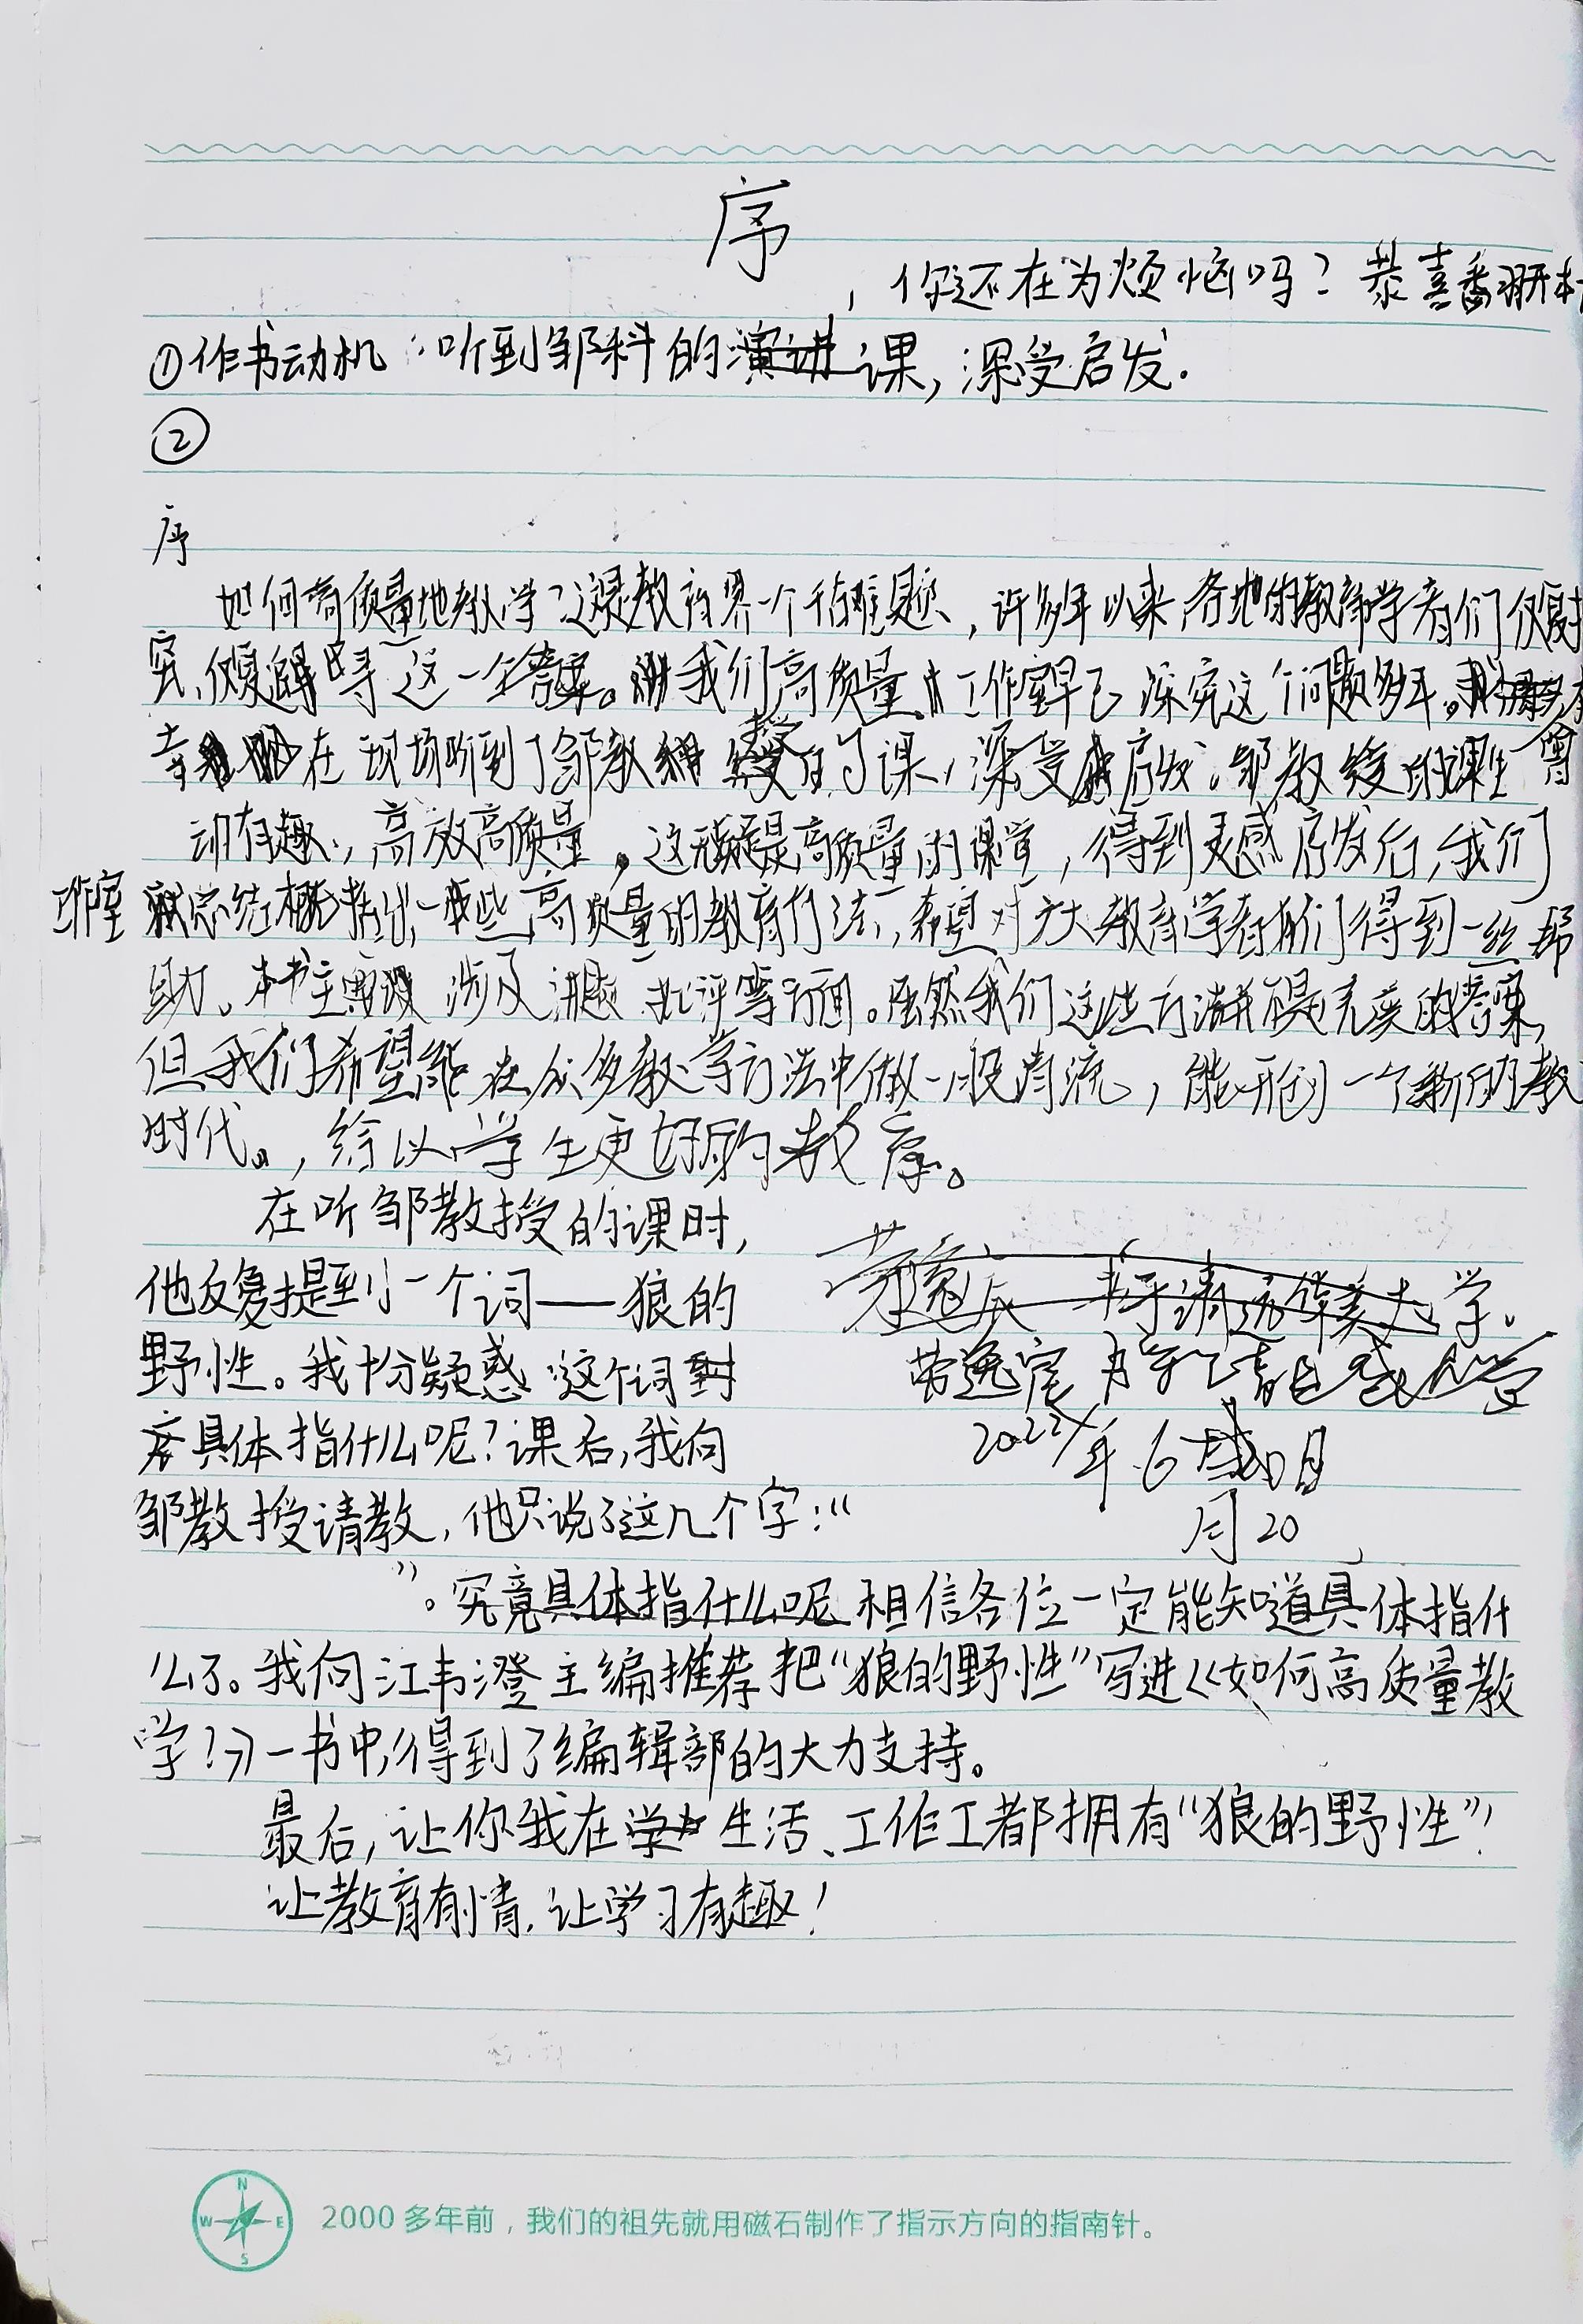 序
，你还在为烦恼吗？恭喜翻开本
①作书动机：听到邹科的演讲课，深受启发.
②
序
如何高质量地教学？这是教育界一个千古难题，许多年以来各地的教育学者们仅
究、这一个答案。我们高质量工作室早已深究这个问题多年。
幸在现场听到了邹教授的课，深受启发。邹教授的课生
动有趣，高效高质量，这无疑是高质量的课堂，得到灵感启发后，我们
工作室总结概括出一些高质量的教育方法，希望对广大教育学者们得到一丝帮
助。本书主要涉及讲题、批评等方面。虽然我们这些方法并不是完美的答案，
但我们希望能在众多教学方法中做一股清流，能开创一个新的教
时代。，给以学生更好的教育。
在听邹教授的课时，
他反复提到一个词——狼的
野性。我十分疑惑 这个词到
底具体指什么呢？课后，我向
邹教授请教，他只说了这几个字：“
”。究竟具体指什么呢 相信各位一定能知道具体指什
么了。我向江韦澄主编推荐把“狼的野性”写进《如何高质量教
学？》一书中，得到了编辑部的大力支持。
最后，让你我在学力生活、工作工都拥有“狼的野性”！
让教育有情，让学习有趣！
书于清远华美大学。
年6
月20
2000多年前，我们的祖先就用磁石制作了指示方向的指南针。
N
W E
S